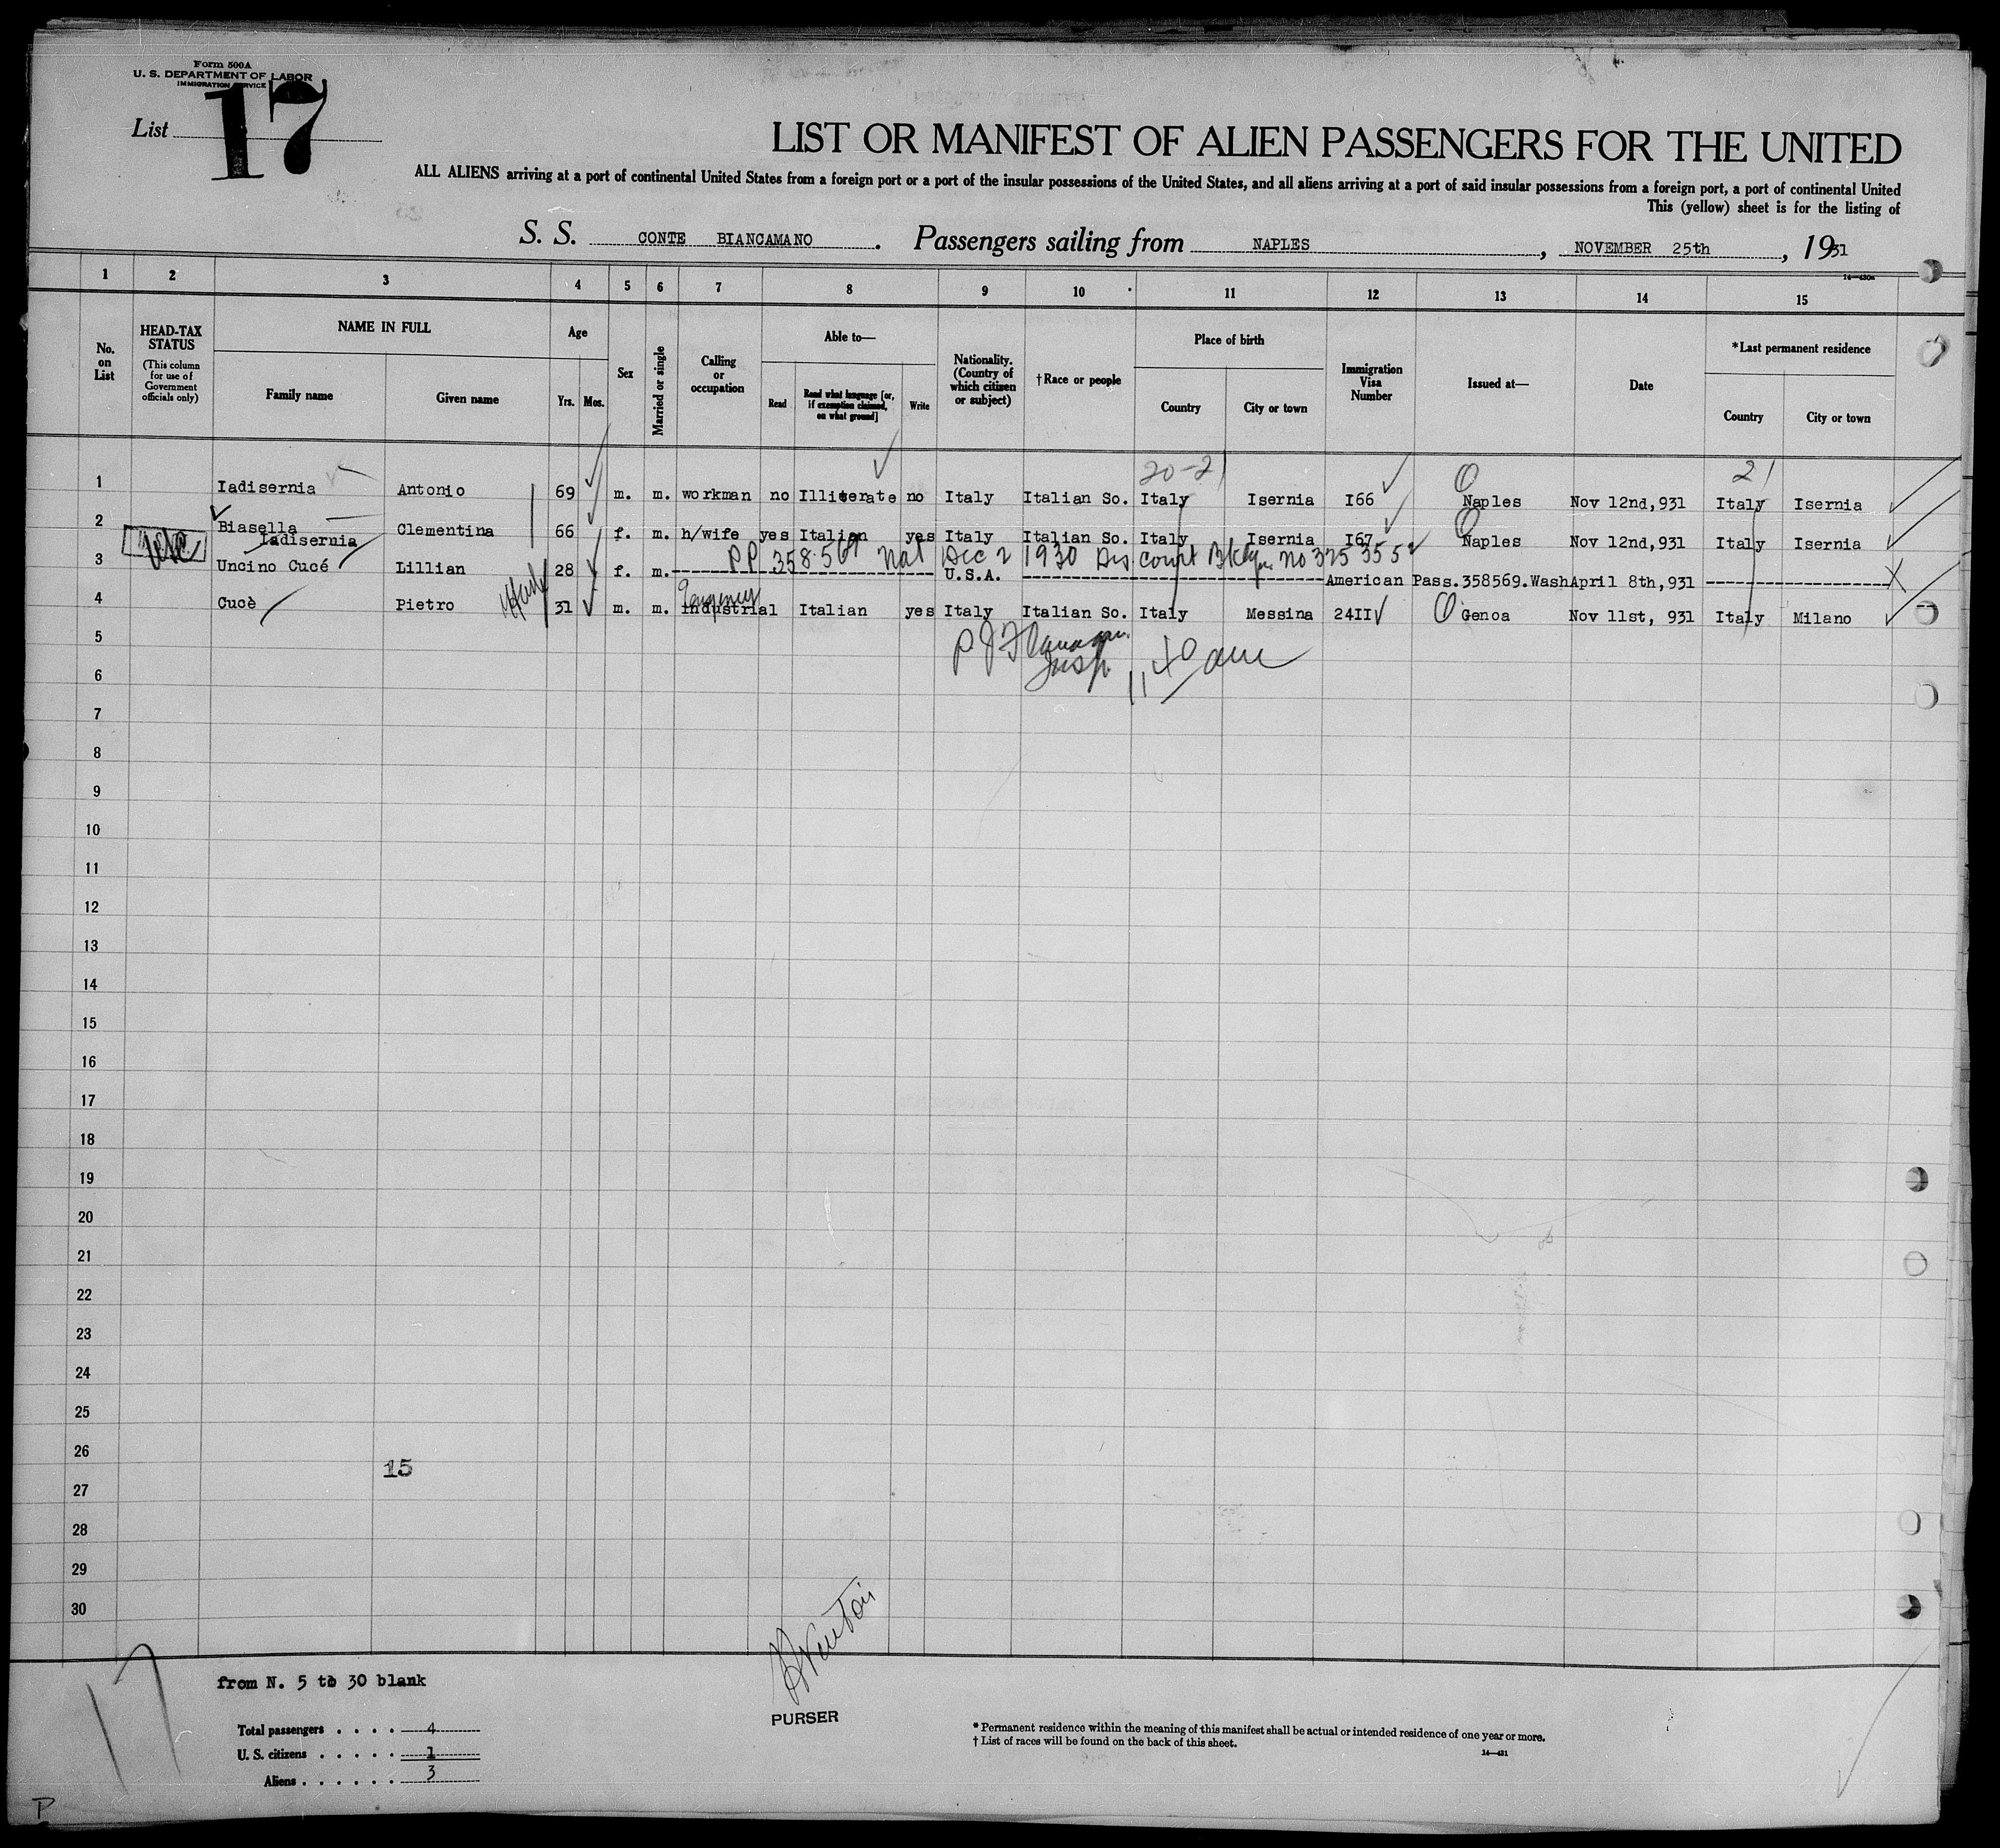 Form 500A
U. S. DEPARTMENT OF LABOR
IMMIGRATION SERVICE
List 17
LIST OR MANIFEST OF ALIEN PASSENGERS FOR THE UNITED
ALL ALIENS arriving at a port of continental United States from a foreign port or a port of the insular possessions of the United States, and all aliens arriving at a port of said insular possessions from a foreign port, a port of continental United
This (yellow) sheet is for the listing of
S. S. CONTE BIANCAMANO. Passengers sailing from NAPLES, NOVEMBER 25th, 1931
14—430a
1 2 3 4 5 6 7 8 9 10 11 12 13 14 15
No. on List
HEAD-TAX STATUS
(This column for use of Government officials only)
NAME IN FULL
Family name
Given name
Age
Yrs. Mos.
Sex
Married or single
Calling or occupation
Able to—
Read
Read what language [or, if exemption claimed, on what ground]
Write
Nationality. (Country of which citizen or subject)
†Race or people
Place of birth
Country
City or town
Immigration Visa Number
Issued at—
Date
*Last permanent residence
Country
City or town
20-21
21
1 Iadisernia Antonio 69 m. m. workman no Illiterate no Italy Italian So. Italy Isernia I66 Naples Nov 12nd,931 Italy Isernia
2 Biasella Iadisernia Clementina 66 f. m. h/wife yes Italian yes Italy Italian So. Italy Isernia I67 Naples Nov 12nd,931 Italy Isernia
PP 358.569 Nat Dec 2 1930 Dis Court Bklyn. No 3253552
3 Uncino Cucé Lillian 28 f. m. U.S.A. American Pass.358569.Wash April 8th,931
4 Cucè Pietro 31 m. m. industrial Italian yes Italy Italian So. Italy Messina 24II Genoa Nov 11st, 931 Italy Milano
5
Insp. 11 40 am
6
7
8
9
10
11
12
13
14
15
16
17
18
19
20
21
22
23
24
25
26
15
27
28
29
30
17
from N. 5 to 30 blank
Total passengers . . . . 4
U. S. citizens . . . . . 1
Aliens . . . . . . 3
PURSER
* Permanent residence within the meaning of this manifest shall be actual or intended residence of one year or more.
† List of races will be found on the back of this sheet.
14—431
P